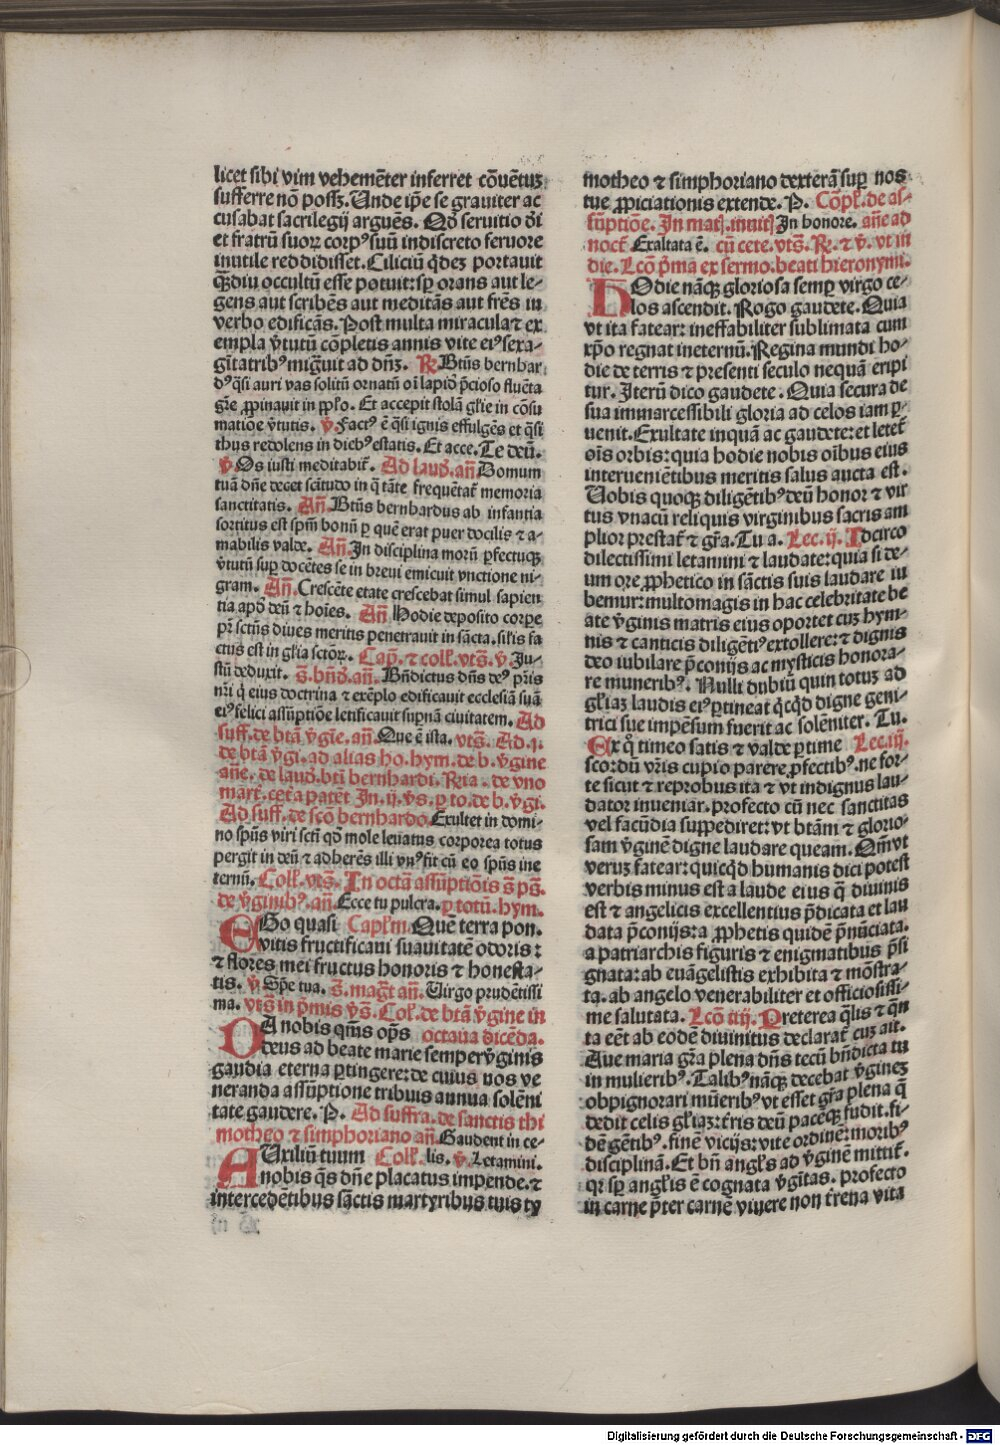 licet sibi vim vehemēter inferret cōuētuꝫ
sufferre nō possꝫ. Unde ip̄e se grauiter ac
cusabat sacrilegij arguēs. Qd̄ seruitio d̄i
et fratrū suoꝝ corpꝰ suū indiscreto feruore
inutile reddidisset. Ciliciū q̇deꝫ portauit
qm̄diu occultū esse potuit: sꝑ orans aut le-
gens aut scribēs aut meditās aut frēs in
verbo edificās. Post multa miracula ⁊ ex
empla v̄tutū cōpletis annis vite eiꝰ sexa-
gītatribꝰ migᷓuit ad dn̄ꝫ. ℟ Btūs bernhar
dꝰ q̄si auri vas solitū ornatū oī lapīd p̄cioso fluēta
gr̄e ꝓpinauit in ppl̄o. Et accepit stolā gl̄ie in cōsu
matiōe v̄tutis. ℣. Factꝰ ē q̄si ignis effulgēs et q̄si
thus redolens in diebꝰ estatis. Et acce. Te deū.
℣ Os iusti meditabit̄. Ad laud̄. an̄ Domum
tuā dn̄e decet sc̄itudo in q̄ tāte frequētat̄ memoria
sanctitatis. An̄. Btūs bernhardus ab infantia
sortitus est spm̄ bonū ꝑ quē erat puer docilis ⁊ a-
mabilis valde. An̄. In disciplina morū ꝑfectuqꝫ
v̄tutū suꝑ docētes se in breui emicuit vnctione ni-
gram. An̄. Crescēte etate crescebat simul sapien
tia apd̄ deū ⁊ hoīes. An̄ Hodie deposito corpe
pr̄ sctūs diues meritis penetrauit in sācta. sil̄is fa
ctus est in gl̄ia sctōꝝ. Cap̄. ⁊ coll̄. vts̄. ℣. Ju-
stū deduxit. S̄. bn̄d̄. an̄. Bn̄dictus dn̄s deꝰ pr̄is
nr̄i q̄ eius doctrina ⁊ exēplo edificauit ecclesiā suā
eiꝰ felici assūptiōe letificauit supnā ciuitatem. Ad
suff. de btā v̄gīe. an̄. Que ē ista. vts̄. Ad. j.
de btā v̄gi. ad alias ho. hym. de b. v̄gine
ane. de laud. bti bernhardi. Rīa. de vno
mart̄. cet̄a patēt In. ij. v̄s. ꝑ to. de b. v̄gi.
Ad suff. de scō bernhardo Exultet in domi-
no spūs viri sctī qd̄ mole leuatus corporea totus
pergit in deū ⁊ adherēs illi vnꝰ fit cū eo spūs ine
ternū. Coll̄. vts̄. In octā assūptiōis s̄ ps̄.
de v̄ginibꝰ. an̄. Ecce tu pulcra. ꝑ totū. hym.
EGo quasi Capl̄m Quē terra pon.
vitis fructificani suauitatē odoris:
⁊ flores mei fructus honoris ⁊ honesta-
tis. ℣ Spē tua. S̄. maḡt an̄. Uirgo prudētissi
ma. vts̄ in p̄mis v̄s̄. Col̄. de btā v̄gine in
DA nobis qm̄s op̄s octaua dicēda.
deus ad beate marie semper v̄ginis
gaudia eterna ꝑtingere: de cuius nos ve
neranda assūptione tribuis annua solēni
tate gaudere. P. Ad suffra. de sanctis thi
motheo ⁊ simphoriano an̄. Gaudent in ce-
AUxiliū tuum Coll̄. lis. ℣. Letamini.
nobis q̄s dn̄e placatus impende. ⁊
intercedētibus sāctis martyribus tuis ty
motheo ⁊ simphoriano dexterā suꝑ nos
tue ꝓpiciationis extende. P. Cōpl̄. de as-
sūptiōe. In mat̄. inuit̄ In honore. an̄e ad
noct̄ Exaltata ē. cū cete. vts̄. ℟. ⁊ ℣. vt in
die. Lcō p̄ma ex sermo. beati hieronymi.
HOdie nāqꝫ gloriosa semꝑ virgo ce-
los ascendit. Rogo gaudete. Quia
vt ita fatear: ineffabiliter sublimata cum
xp̄o regnat ineternū. Regina mundi ho-
die de terris ⁊ presenti seculo nequā eripi
tur. Jterū dico gaudete. Quia secura de
sua immarcessibili gloria ad celos iam ꝑ-
uenit. Exultate inquā ac gaudete: et letet̄
oīs orbis: quia hodie nobis oībus eius
interueniētibus meritis salus aucta est.
Uobis quoqꝫ diligētibꝰ deū honor ⁊ vir
tus vnacū reliquis virginibus sacris am
plior prestat̄ ⁊ gr̄a. Tu a. Lec. ij. Idcirco
dilectissimi letamini ⁊ laudate: quia si de-
um ore ꝓphetico in sāctis suis laudare iu
bemur: multomagis in hac celebritate be
ate v̄ginis matris eius oportet cuꝫ hym-
nis ⁊ canticis diligētiꝰ extollere: ⁊ dignis
deo iubilare p̄conijs ac mysticis honora-
re muneribꝰ. Nulli dubiū quin totuꝫ ad
gl̄iaꝫ laudis eiꝰ ꝑtineat q̄cq̄d digne geni-
trici sue impēsum fuerit ac solēniter. Tu.
Ex q̄ timeo satis ⁊ valde ꝑtime Lec. iij.
scordū vr̄is cupio parere ꝓfectibꝰ. ne for-
te sicut ⁊ reprobus ita ⁊ vt indignus lau-
dator inueniar. profecto cū nec sanctitas
vel facūdia suppediret: vt btām ⁊ glorio-
sam v̄ginē digne laudare queam. Qm̄ vt
veruꝫ fatear: quicq̄d humanis dici potest
verbis minus est a laude eius q̄ diuinis
est ⁊ angelicis excellentius p̄dicata et lau
data p̄conijs: a ꝓphetis quidē p̄nūciata.
a patriarchis figuris ⁊ enigmatibus p̄si
gnata: ab euāgelistis exhibita ⁊ mōstra-
ta. ab angelo venerabiliter et officiosissi-
me salutata. Lcō iiij. Preterea q̄lis ⁊ q̄n
ta eēt ab eodē diuinitus declarat̄ cuꝫ ait.
Aue maria gr̄a plena dn̄s tecū bn̄dicta tu
in mulieribꝰ. Talibꝰ nāqꝫ decebat v̄gineꝫ
obpignorari mūeribꝰ vt esset gr̄a plena q̄
dedit celis gl̄iaꝫ: t̄ris deū pacēqꝫ fudit. fi-
dē gētibꝰ. finē vicijs: vite ordinē: moribꝰ
disciplinā. Et bn̄ angl̄s ad v̄ginē mittit̄.
qr̄ sꝑ angl̄is ē cognata v̄gītas. profecto
in carne p̄ter carnē viuere non t̄rena vita
Digitalisierung gefördert durch die Deutsche Forschungsgemeinschaft - DFG